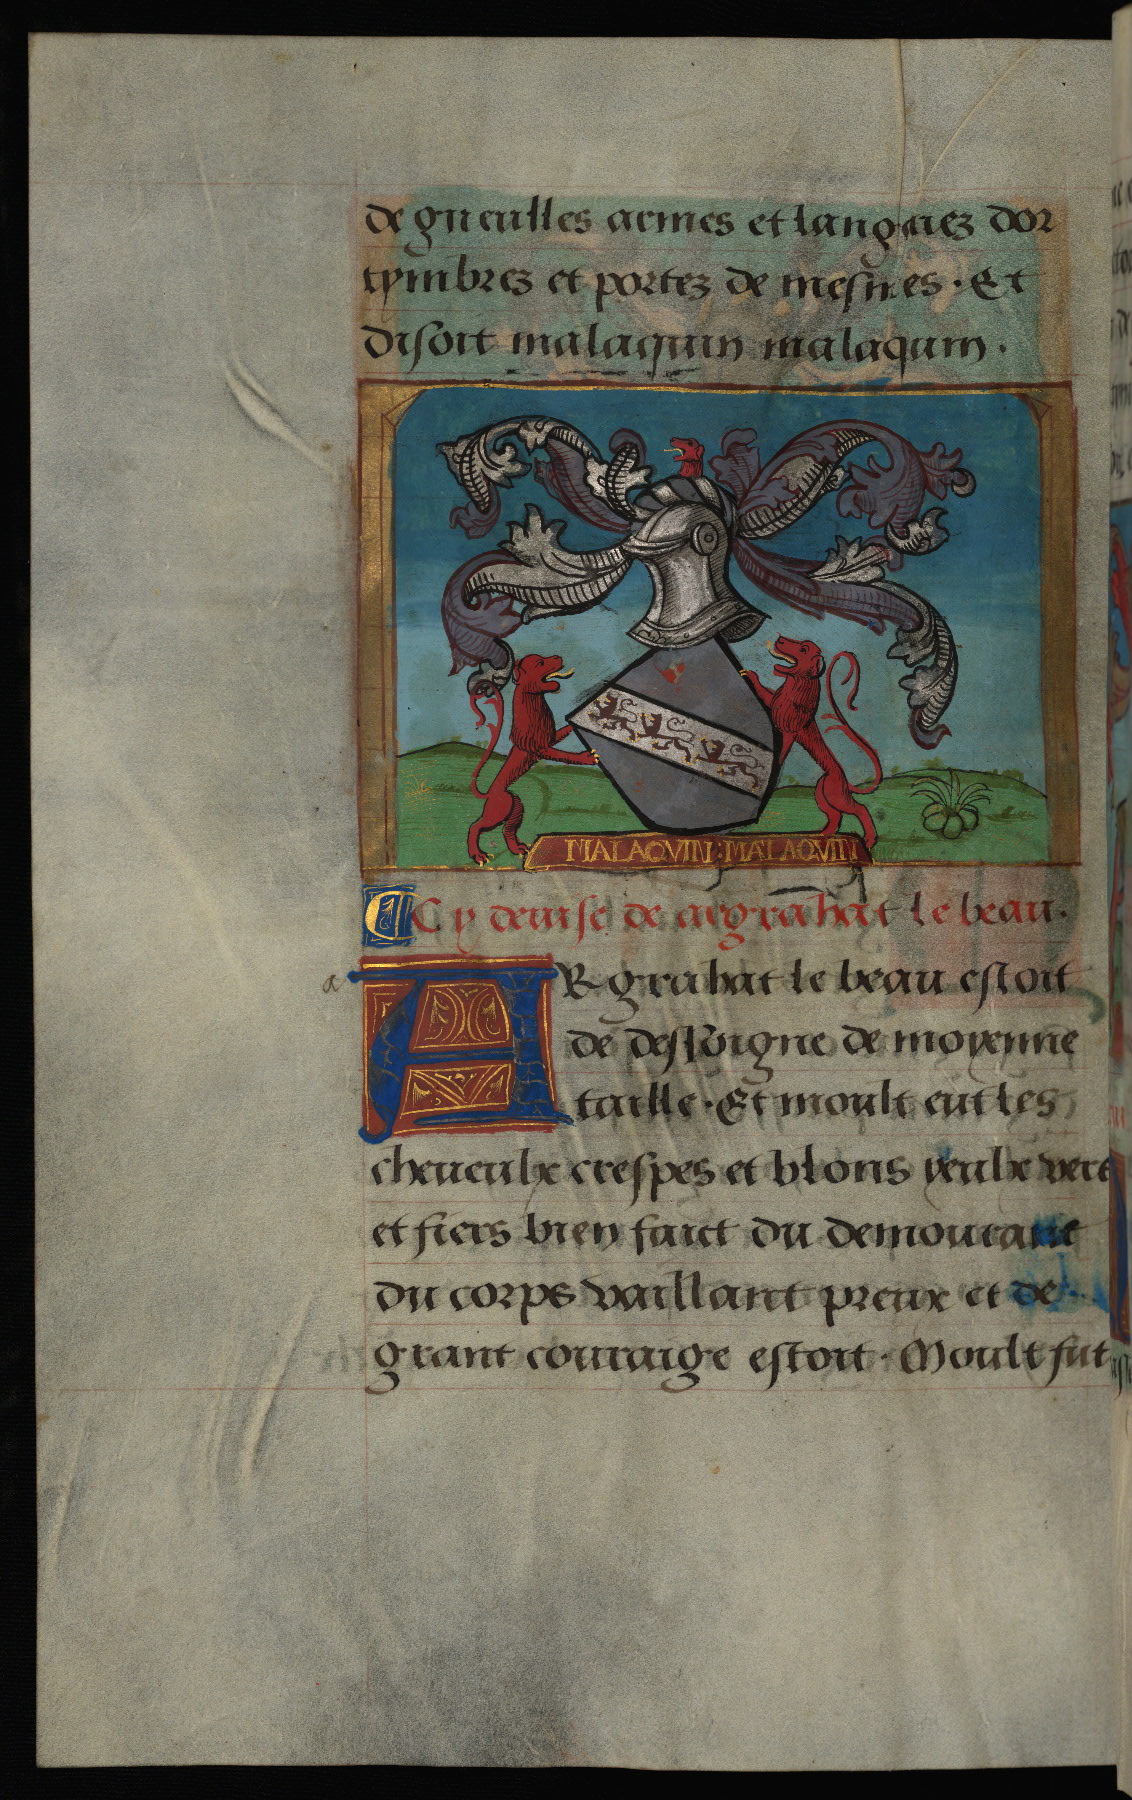 de gueulles armes et langaiez dor
tymbrez et portez de mesmes. Et
disoit malaquin malaquin.
MALAQVIN:MALAQVIN
Cy deuise de argrahat le beau.
a
ARgrahat le beau estoit
de dessoigne de moyenne
taille. Et moult eut les
cheueulx crespes et blons yeulx vers
et fiers bien faict du demourant
du corps vaillant preux et de
grant couraige estoit. Moult fut